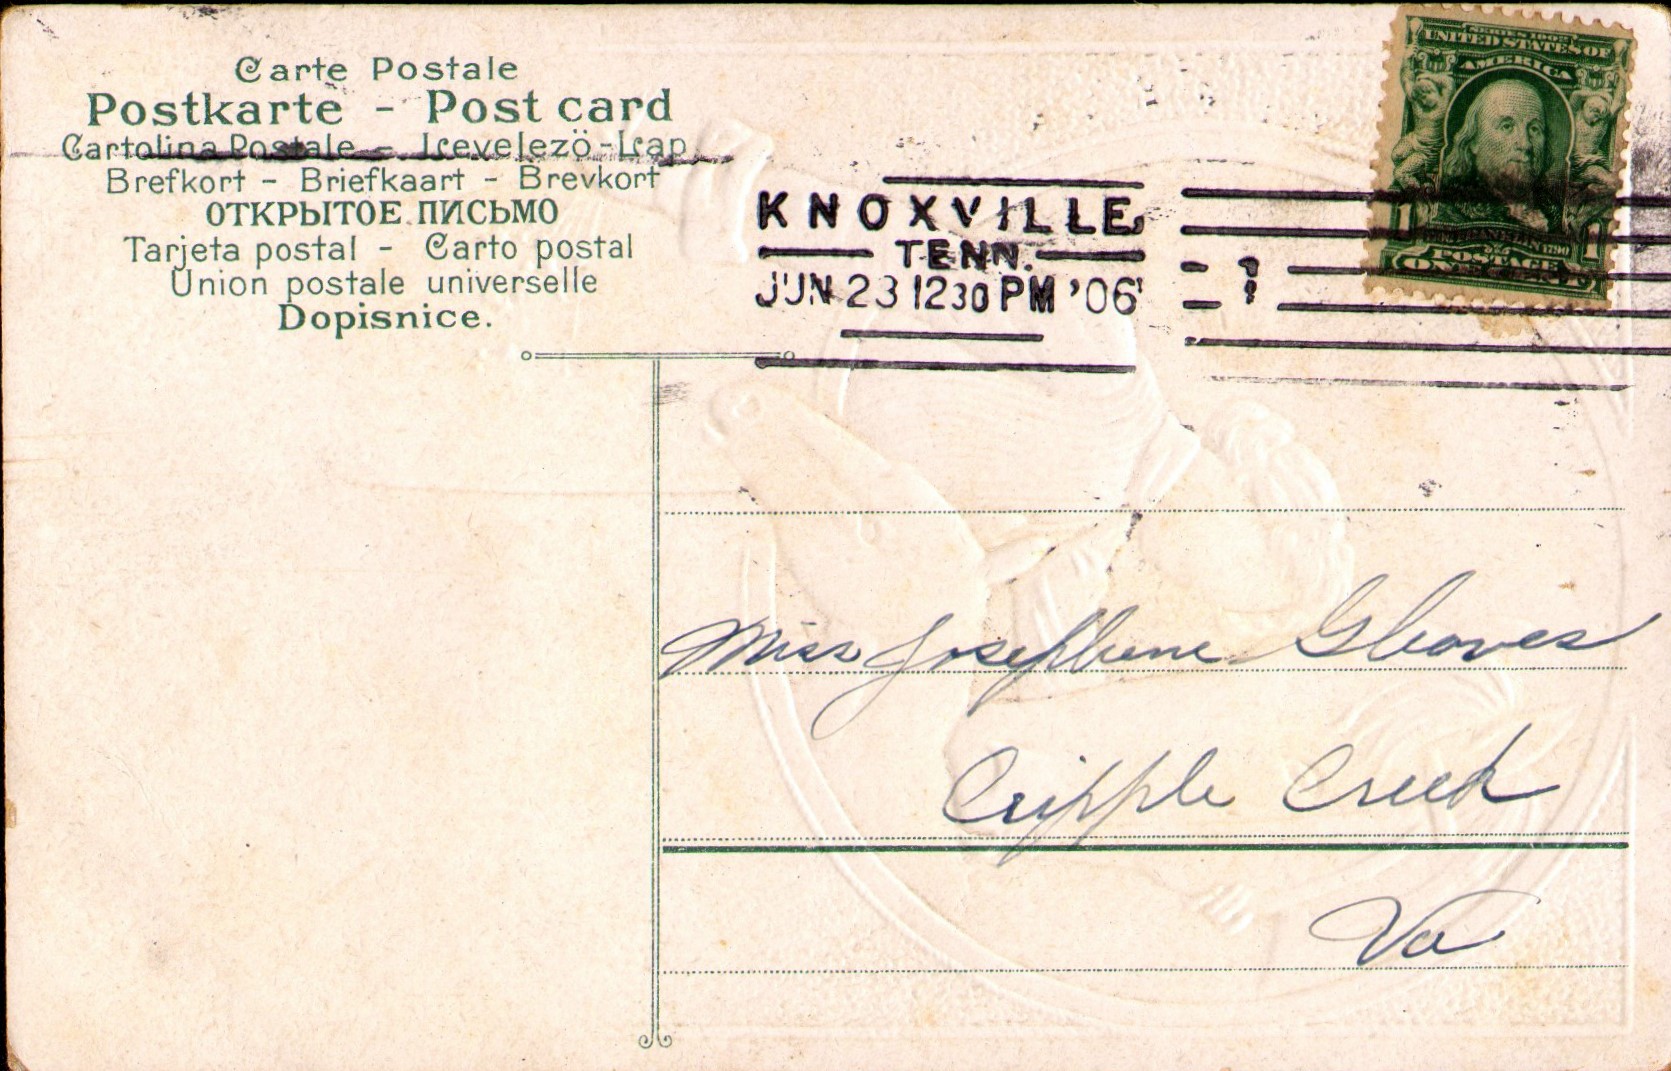 Carte Postale
Postkarte - Post card
Cartolina Postale - Levelezö-Lap
Brefkort - Briefkaart - Brevkort
ОТКРЫТОЕ ПИСЬМО
Tarjeta postal - Carto postal
Union postale universelle
Dopisnice.
KNOXVILLE,
TENN.
JUN 23 1230 PM '06
SERIES 1902
UNITED STATES OF
AMERICA
1 1
POSTAGE
ONE CENT
Miss Josephine Gleaves
Cripple Creek
Va